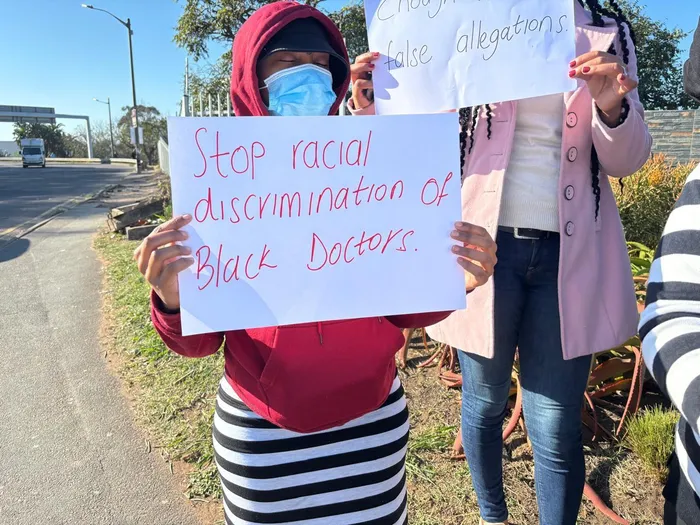 Enough
false allegations.
Stop racial
discrimination of
Black Doctors.